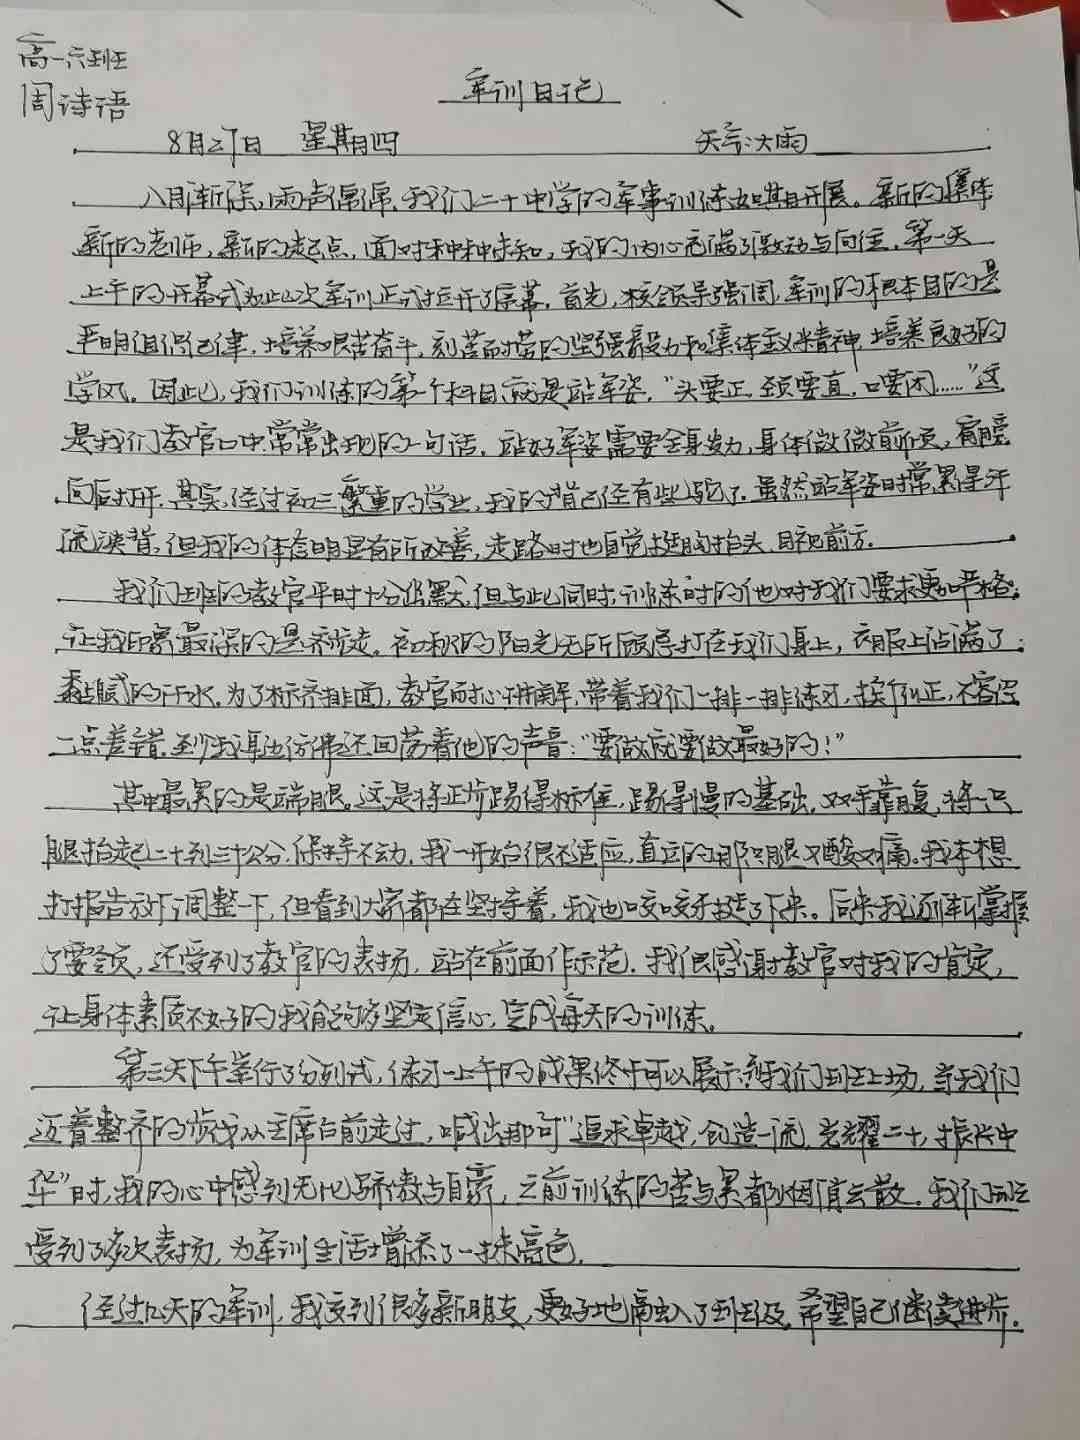 高一六班
周诗语
军训日记
8月27日 星期四 天气:大雨
八月渐深,雨声潺潺,我们二十中学的军事训练如期开展。新的集体
新的老师,新的起点,面对种种未知,我的内心充满了激动与向往,第一天
上午的开幕式为此次军训正式拉开了序幕。首先,校领导强调,军训的根本目的是
严明组织纪律,培养艰苦奋斗,刻苦耐劳的坚强毅力和集体主义精神,培养良好的
学风。因此,我们训练的第一个科目就是站军姿,“头要正,颈要直,口要闭……”这
是我们教官口中常常出现的一句话。站好军姿需要全身发力,身体微微前倾,肩膀
向后打开。其实,经过初三繁重的学业,我的背已经有些驼了。虽然站军姿时常累得汗
流浃背,但我的体态明显有所改善,走路时也自觉挺胸抬头,目视前方。
我们班的教官平时十分幽默,但与此同时,训练时的他对于我们要求更加严格;
让我印象最深的是齐步走。初秋的阳光无所顾忌打在我们身上,衣服上沾满了
黏腻的汗水。为了标齐排面,教官耐心讲解,带着我们一排一排练习,挨个纠正,不容
一点差错。至今我耳边仿佛还回荡着他的声音:“要做就要做最好的!”
其中最累的是端腿。这是将正步踢得标准,踢得慢的基础。双手靠腹,将一只
腿抬起二十到三十公分,保持不动。我一开始很不适应,直立的那只腿又酸又痛。我本想
打报告放下调整一下,但看到大家都在坚持着,我也咬咬牙挺了下来。后来我逐渐掌握
了要领,还受到了教官的表扬,站在前面作示范。我很感谢教官对我的肯定,
让身体素质不好的我能够坚定信心,完成每天的训练。
第三天下午举行了分列式,练习一上午的成果终于可以展示。到我们班上场,当我们
迈着整齐的步伐从主席台前走过,喊出那句“追求卓越,创造一流,光耀二十,振兴中
华”时,我的心中感到无比骄傲与自豪,之前训练的苦与累都烟消云散。我们班
受到了多次表扬,为军训生活增添了一抹亮色。
经过几天的军训,我交到很多新朋友,更好地融入了班级。希望自己继续进步。